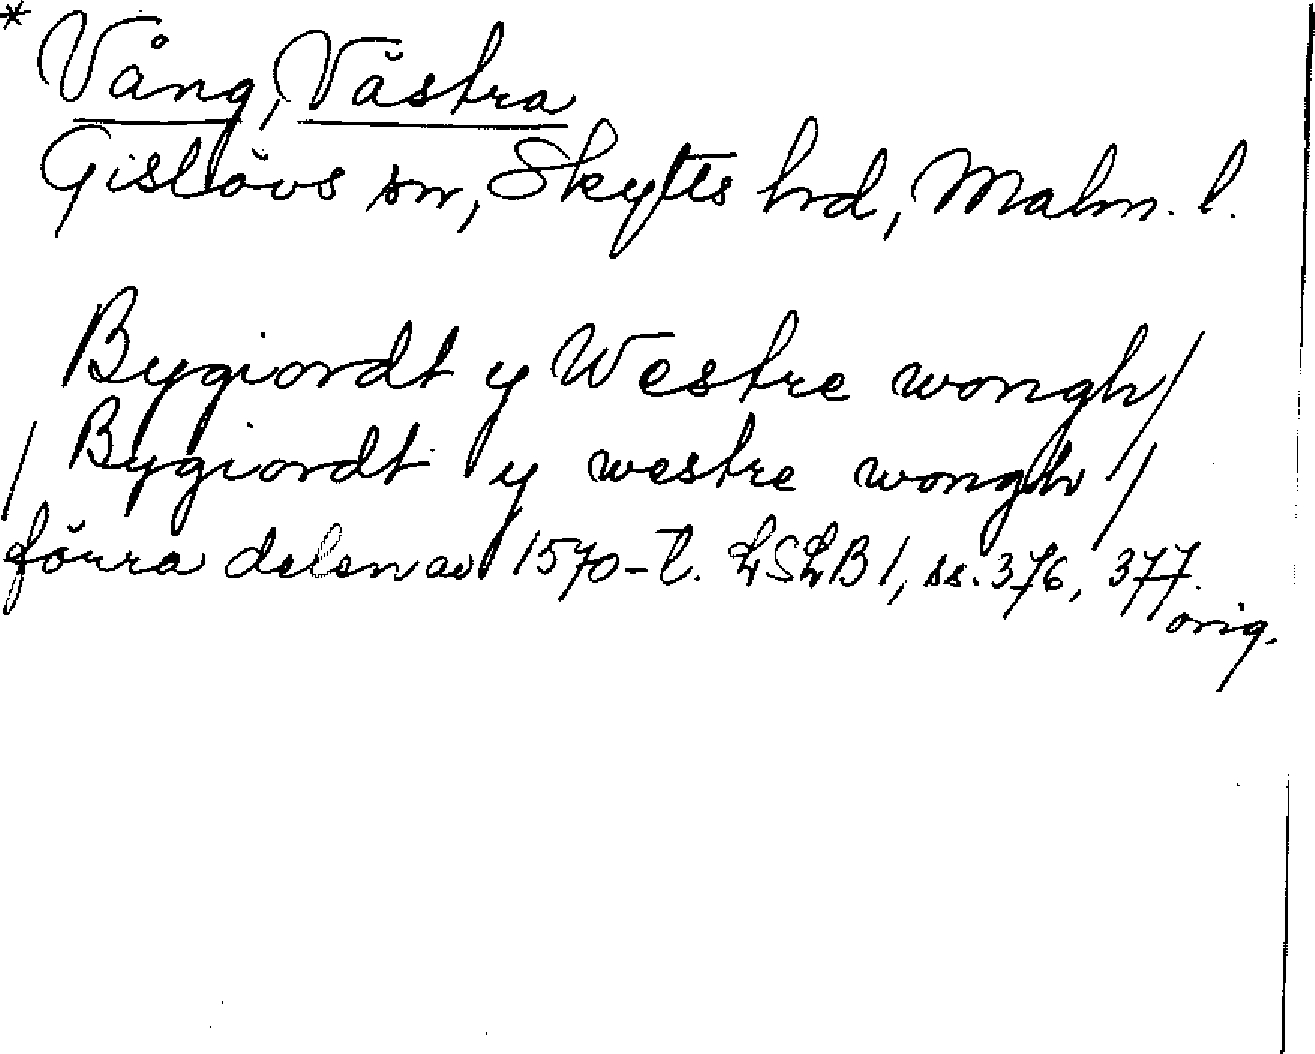 * Vång, Västra
Gislövs sn, Skytts hrd, Malm. l.
Bygiordt y Westre wongh /
/ Bygiordt y westre wongh /
förra delen av 1570-t. LSLB 1, ss. 376, 377.
orig.